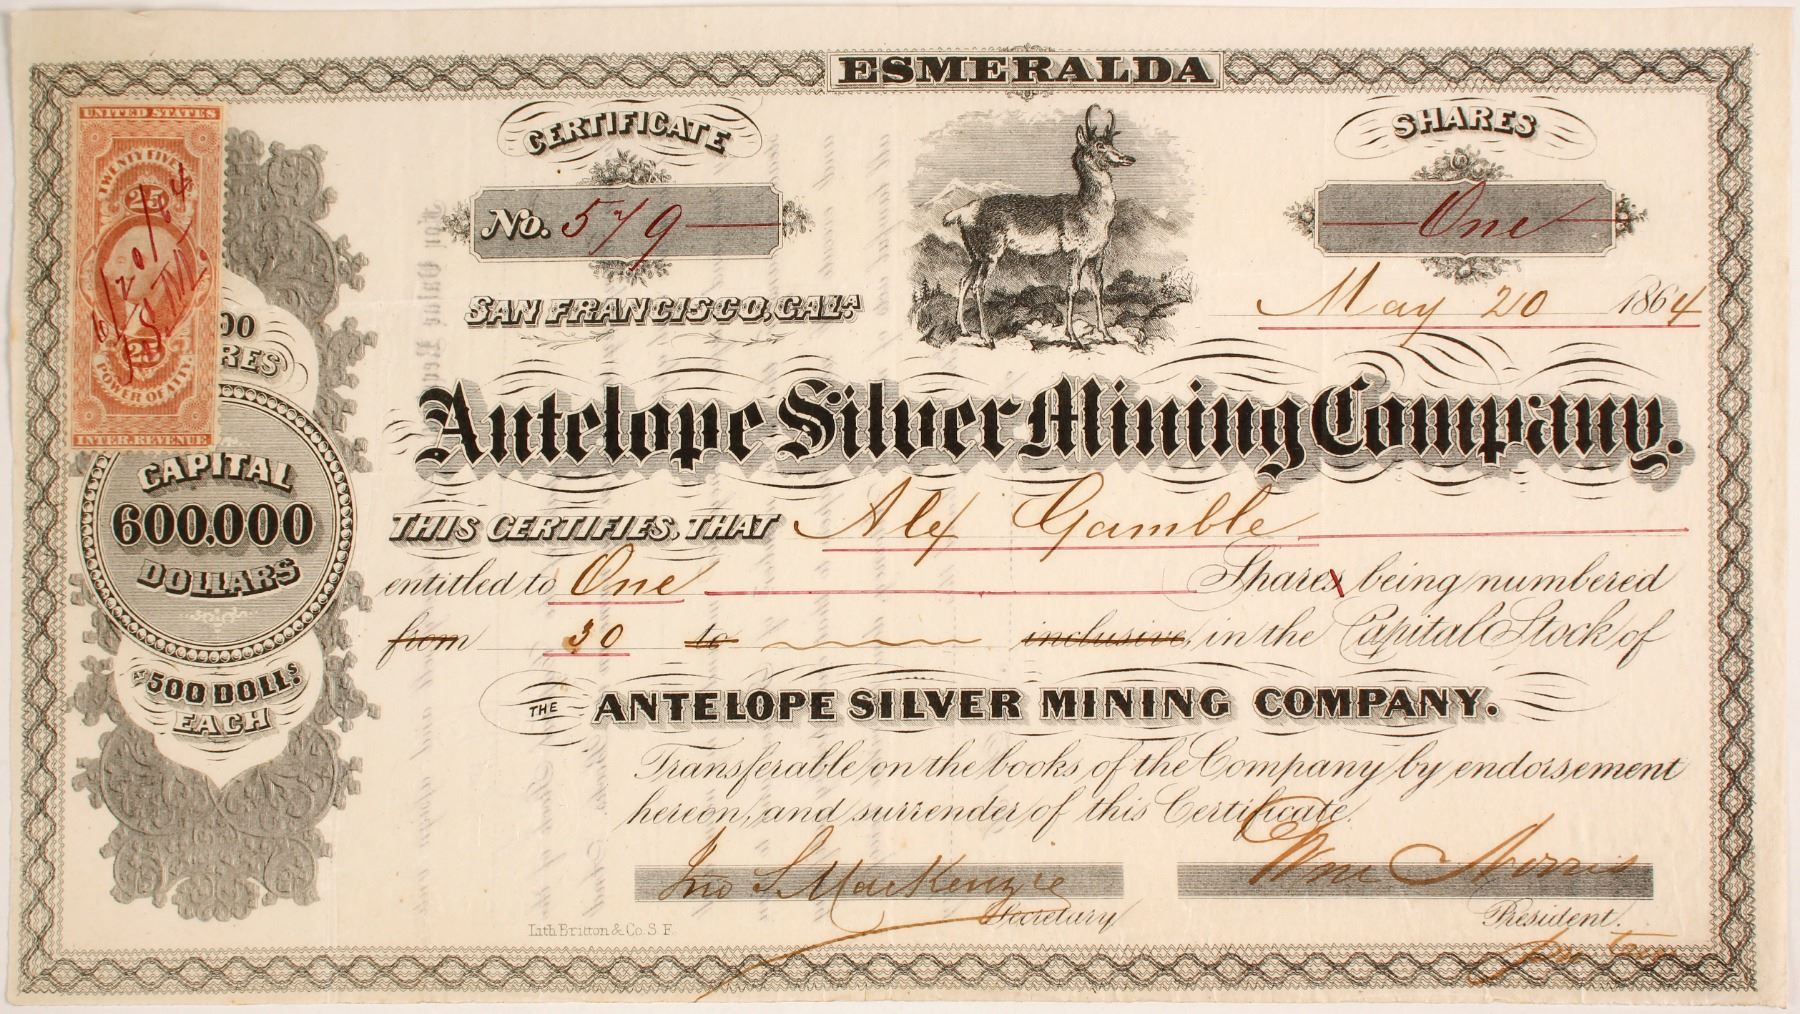 ESMERALDA
UNITED STATES
TWENTY FIVE
25
25
POWER OF ATT'Y
INTER. REVENUE
CERTIFICATE
No. 579
SHARES
One
SAN FRANCISCO, CAL.A
May 20 1864
Antelope Silver Mining Company.
CAPITAL
600,000
DOLLARS
AT 500 DOLLS.
EACH
THIS CERTIFIES, THAT Alex Gamble
entitled to One Shares being numbered
from 30 to inclusive, in the Capital Stock of
THE ANTELOPE SILVER MINING COMPANY.
Transferable on the books of the Company by endorsement
hereon, and surrender of this Certificate.
Jno S. MacKenzie Wm Norris
Secretary President.
pro tem
Lith. Britton & Co. S. F.